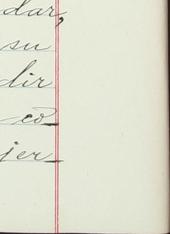 dar,
su
dir
co
jer-